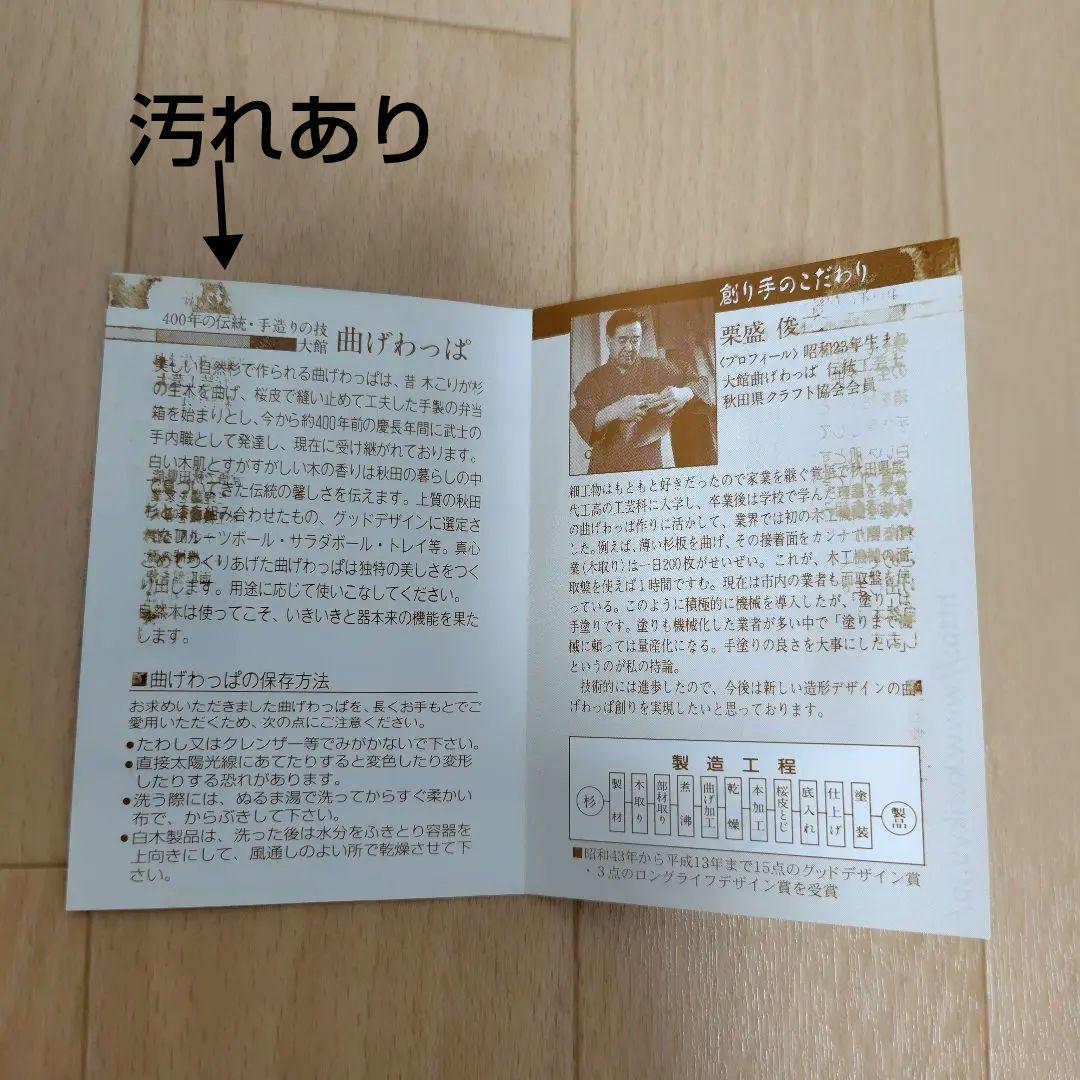 汚れあり
400年の伝統・手造りの技
大館 曲げわっぱ
美しい自然杉で作られる曲げわっぱは、昔 木こりが杉
の生木を曲げ、桜皮で縫い止めて工夫した手製の弁当
箱を始まりとし、今から約400年前の慶長年間に武士の
手内職として発達し、現在に受け継がれております。
白い木肌とすがすがしい木の香りは秋田の暮らしの中
きた伝統の馨しさを伝えます。上質の秋田
杉と 組み合わせたもの、グッドデザインに選定さ
れたフルーツボール・サラダボール・トレイ等。真心
こめてつくりあげた曲げわっぱは独特の美しさをつく
り出します。用途に応じて使いこなしてください。
自然木は使ってこそ、いきいきと器本来の機能を果た
します。
■曲げわっぱの保存方法
お求めいただきました曲げわっぱを、長くお手もとでご
愛用いただくため、次の点にご注意ください。
●たわし又はクレンザー等でみがかないで下さい。
●直接太陽光線にあてたりすると変色したり変形
したりする恐れがあります。
●洗う際には、ぬるま湯で洗ってからすぐ柔かい
布で、からぶきして下さい。
●白木製品は、洗った後は水分をふきとり容器を
上向きにして、風通しのよい所で乾燥させて下
さい。
創り手のこだわり
栗盛 俊二
〈プロフィール〉昭和23年生ま
大館曲げわっぱ 伝統工芸士
秋田県クラフト協会会員
細工物はもともと好きだったので家業を継ぐ覚悟で秋田県能
代工高の工芸科に入学し、卒業後は学校で学んだ理論を家業
の曲げわっぱ作りに活かして、業界では初の木工機械を導入
した。例えば、薄い杉板を曲げ、その接着面をカンナで削る作
業(木取り)は一日200枚がせいぜい。これが、木工機械の面
取盤を使えば1時間ですむ。現在は市内の業者も面取盤を使
っている。このように積極的に機械を導入したが、塗りは
手塗りです。塗りも機械化した業者が多い中で「塗りまで機
械に頼っては量産化になる。手塗りの良さを大事にしたい」
というのが私の持論。
技術的には進歩したので、今後は新しい造形デザインの曲
げわっぱ創りを実現したいと思っております。
製造工程
杉 製材 木取り 部材取り 煮沸 曲げ加工 乾燥 本加工 桜皮とじ 底入れ 仕上げ 塗装 製品
■昭和43年から平成13年まで15点のグッドデザイン賞
・3点のロングライフデザイン賞を受賞